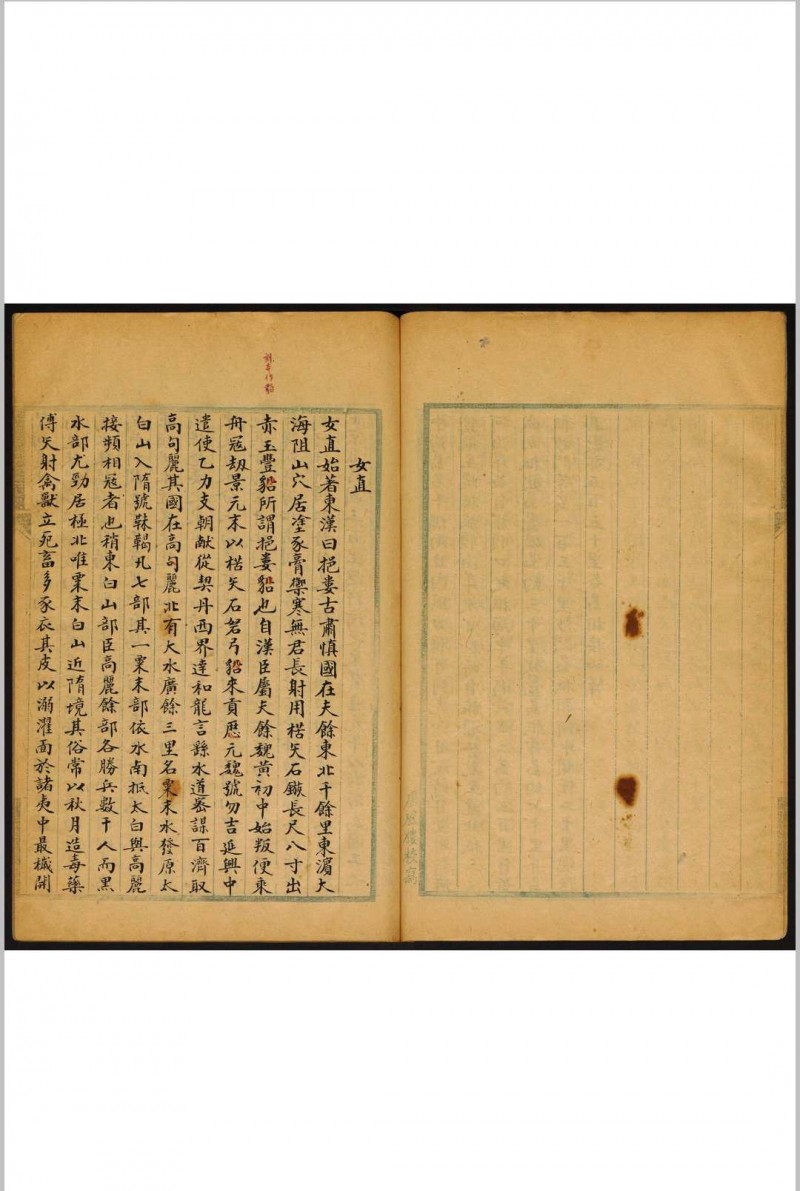 女直
女直始著東漢曰挹婁古肅慎國在夫餘東北千餘里東濵大
海阻山穴居塗豕膏禦寒無君長射用楛矢石鏃長尺八寸出
赤玉豐貂所謂挹婁貂也自漢臣屬夫餘魏黃初中始叛便乘
舟冦刼景元末以楛矢石砮弓貂來貢歷元魏號勿吉延興中
遣使乙力支朝獻從契丹西界達和龍言縣水道密謀百濟取
高句麗其國在高句麗北有大水廣餘三里名粟末水發原太
白山入隋號靺鞨凡七部其一粟末部依水南抵太白與高麗
接頻相冦者也稍東白山部臣高麗餘部各勝兵數千人而黑
水部尤勁居極北唯粟末白山近隋境其俗常以秋月造毒藥
傅矢射禽獸立死畜多豕衣其皮以溺濯面於諸夷中最穢開